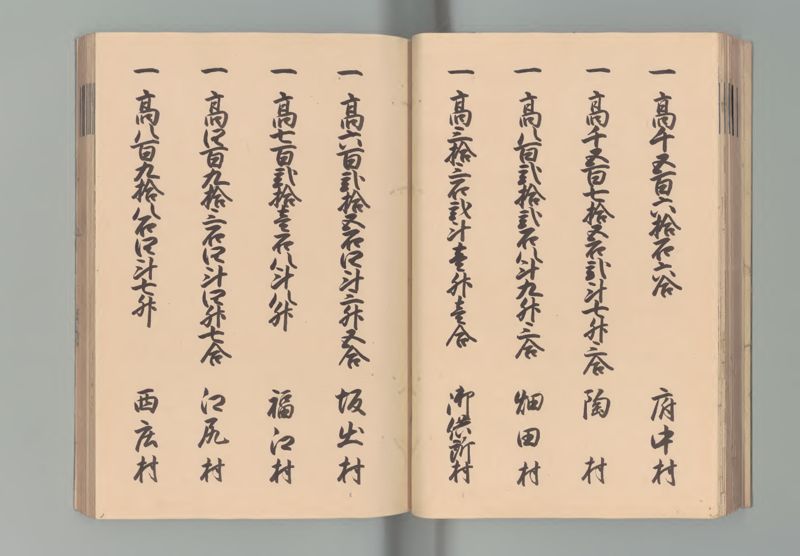 一 高千五百六拾石六合 府中村
一 高千五百七拾五石弐斗七升三合 陶村
一 高八百弐拾弐石八斗九升三合 畑田村
一 高三拾三石弐斗壱升壱合 御供所村
一 高六百弐拾五石四斗三升五合 坂出村
一 高七百弐拾壱石八斗八升 福江村
一 高四百九拾三石四斗四升七合 江尻村
一 高八百九拾八石四斗七升 西庄村